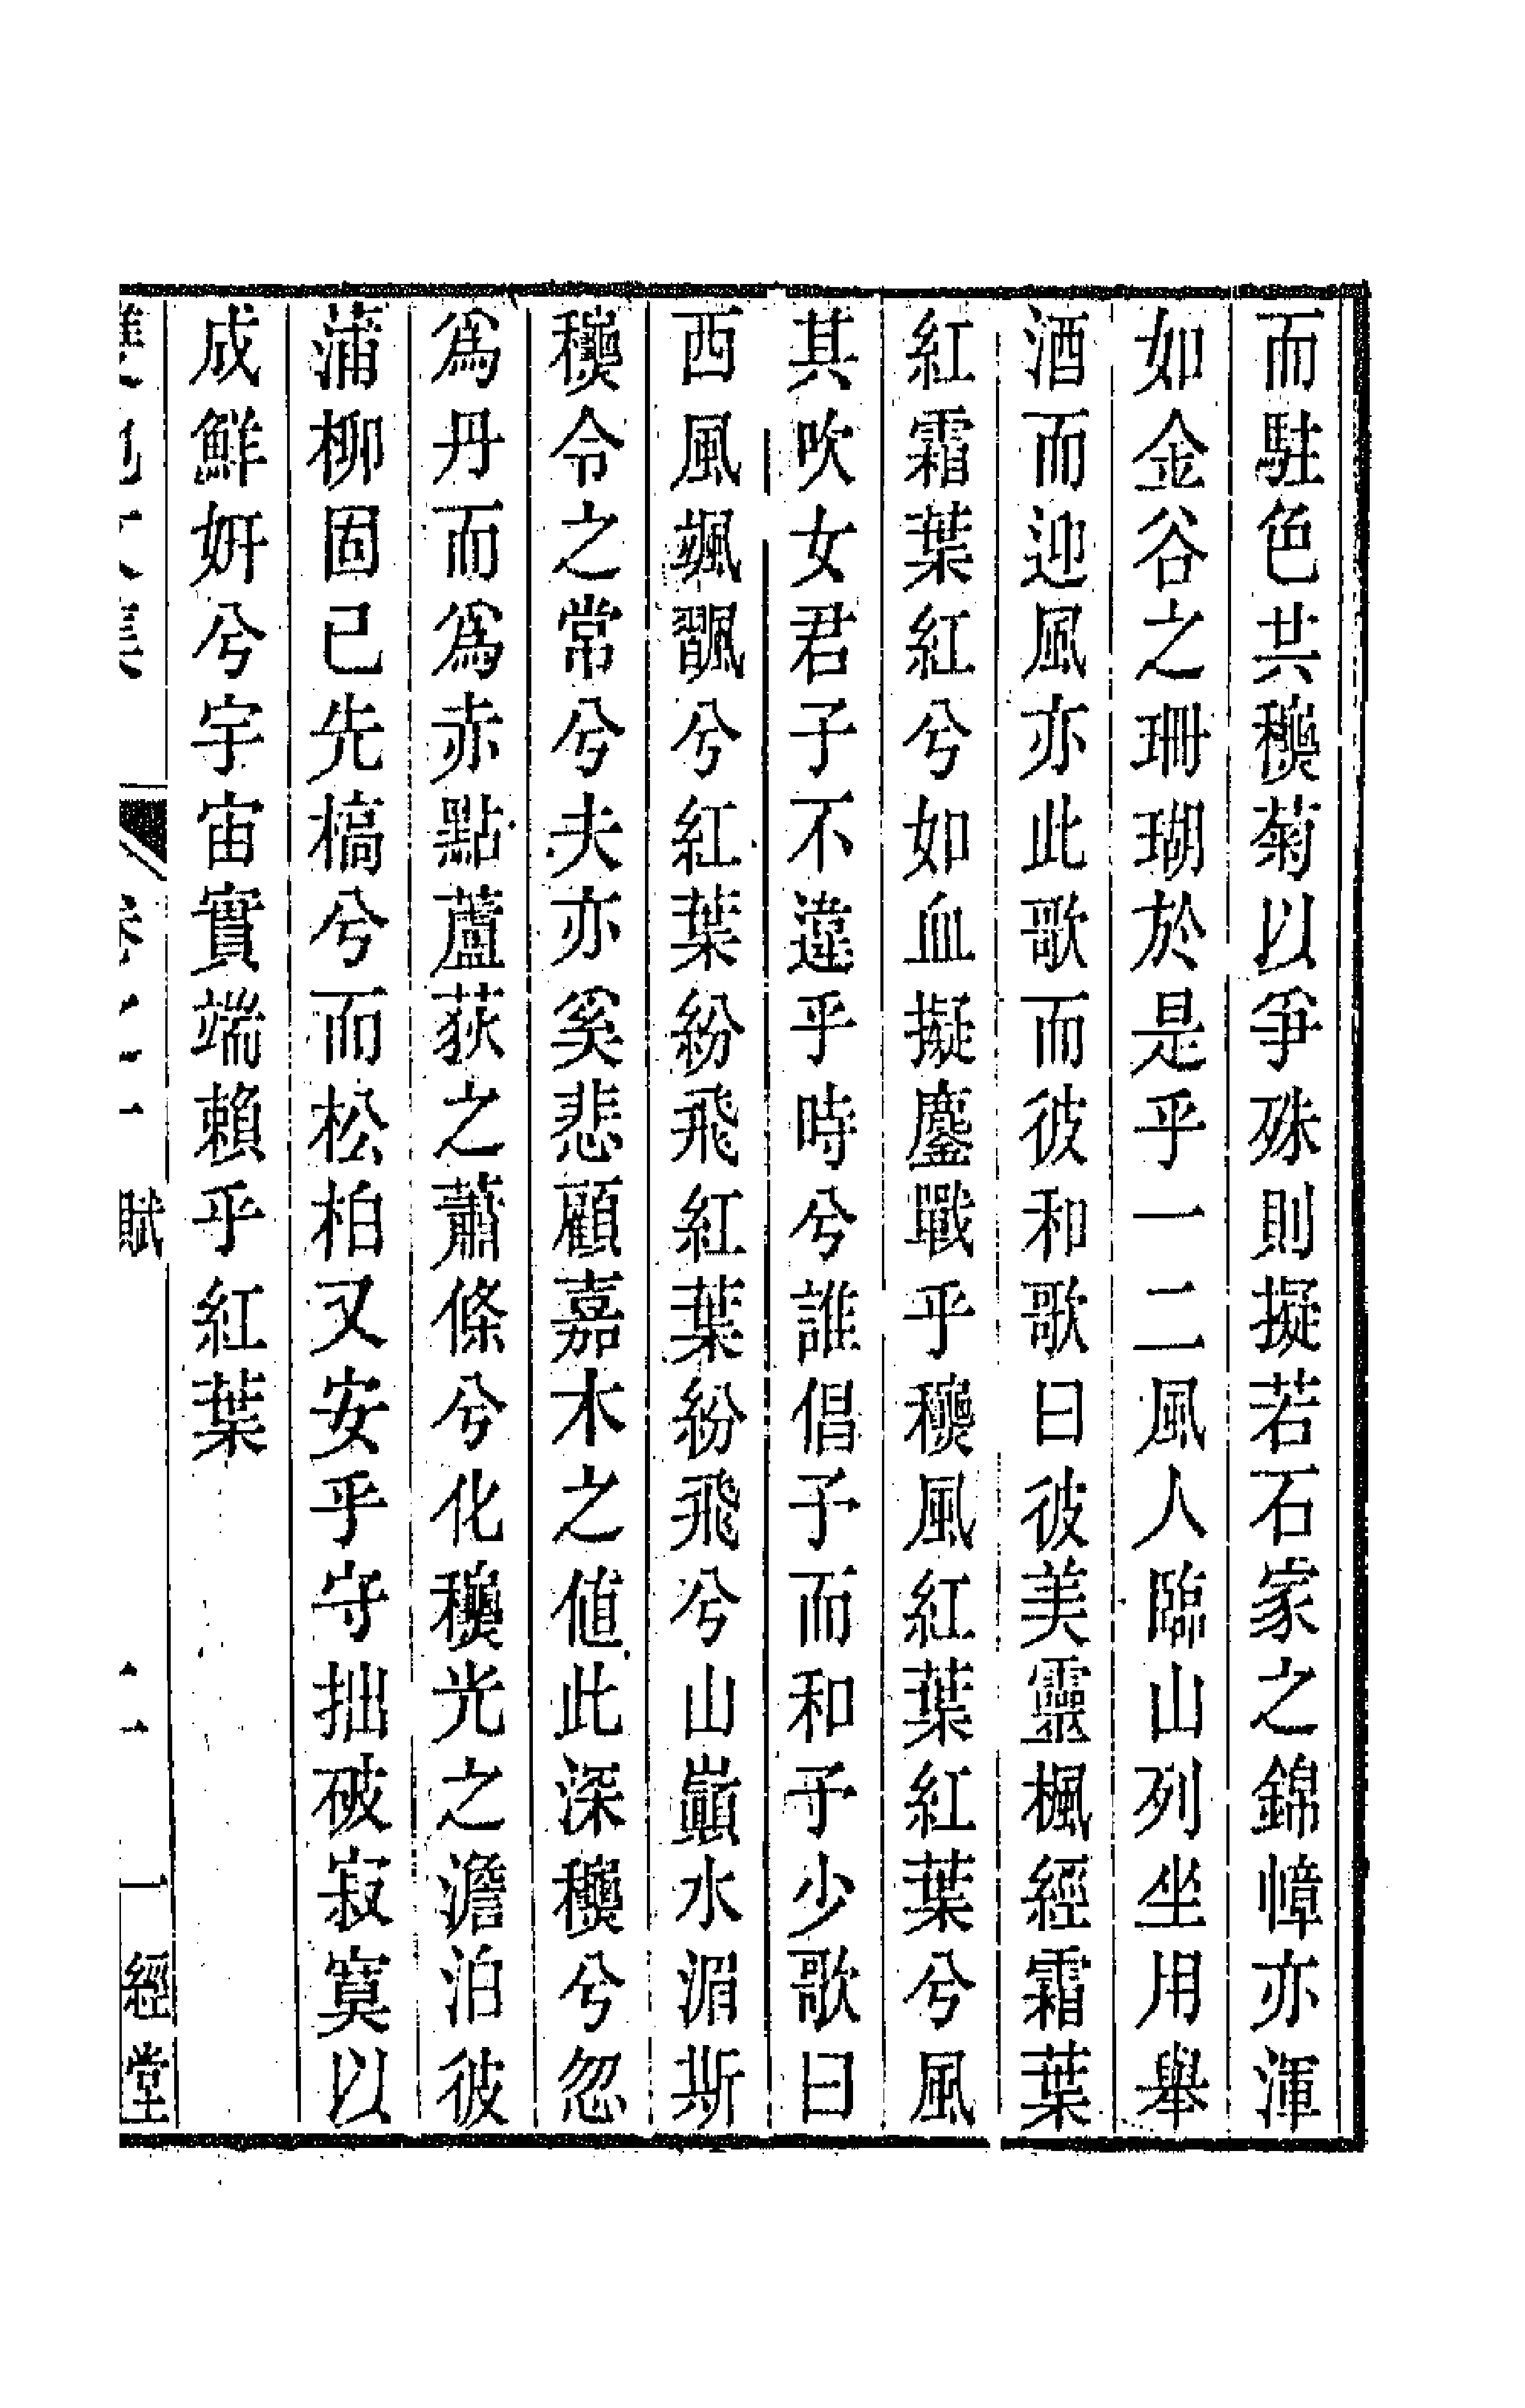 而駐色共穐菊以爭殊則擬若石家之錦幛亦渾
如金谷之珊瑚於是乎一二風人臨山列坐用舉
酒而迎風亦此歌而彼和歌曰彼美靈楓經霜葉
紅霜葉紅兮如血擬鏖戰乎穐風紅葉紅葉兮風
其吹女君子不違乎時兮誰倡予而和予少歌曰
西風颯飁兮紅葉紛飛紅葉紛飛兮山巔水湄斯
穐令之常兮夫亦奚悲顧嘉木之値此深穐兮忽
爲丹而爲赤點蘆荻之蕭條兮化穐光之澹泊彼
蒲柳固已先槁兮而松柏又安乎守拙破寂寞以
成鮮妍兮宇宙實端賴乎紅葉
集 卷 賦 一經堂